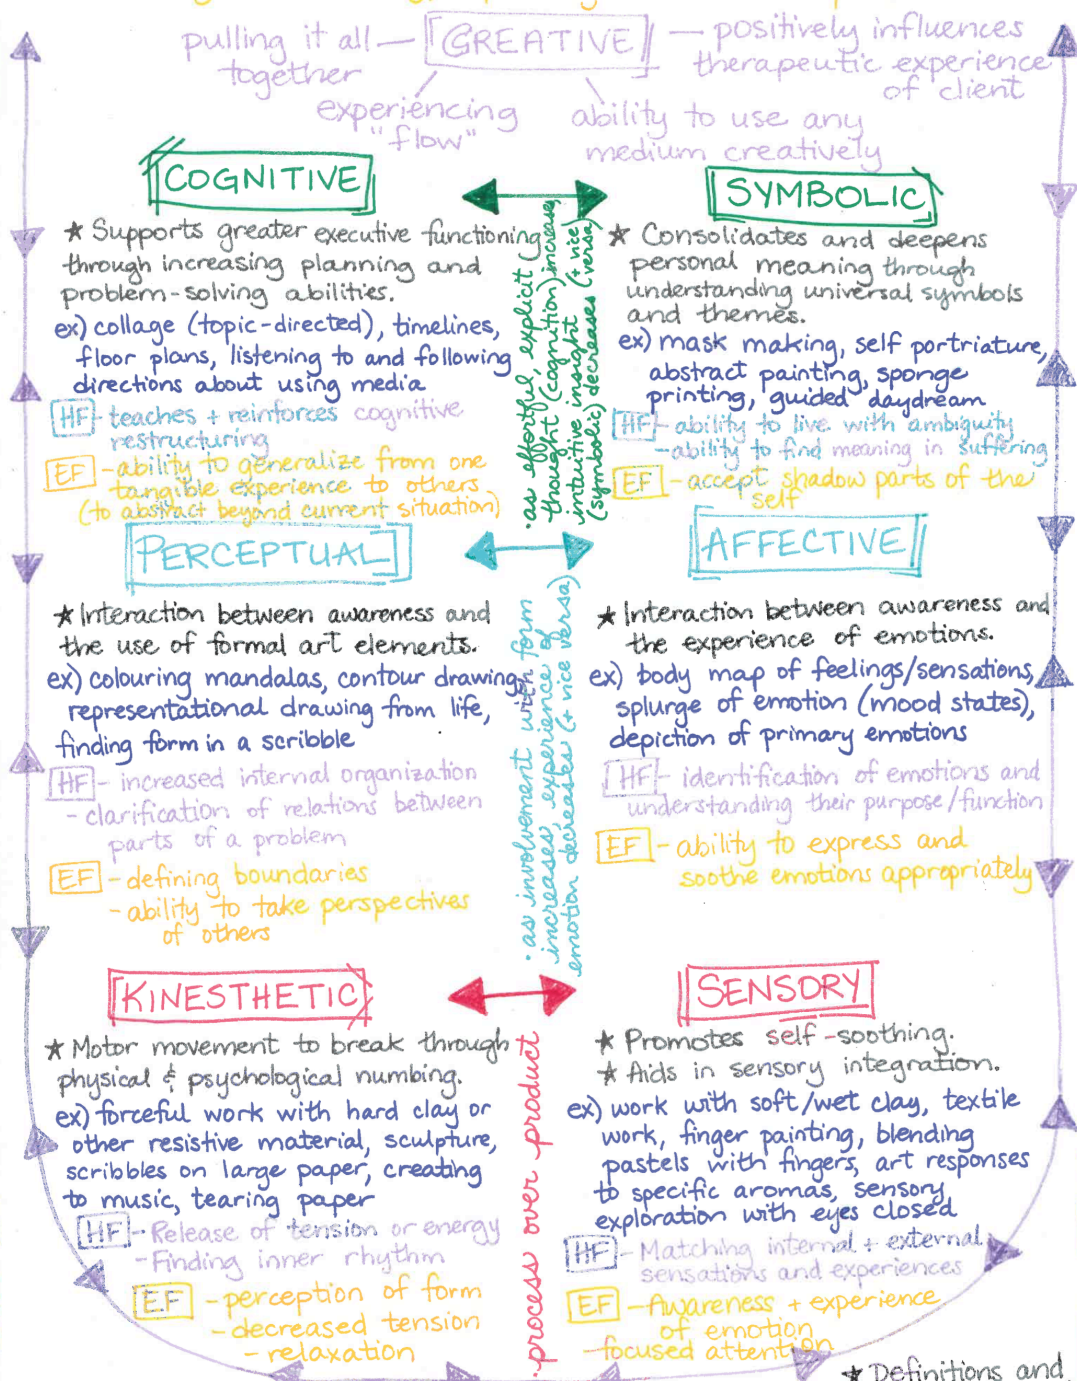 pulling it all — CREATIVE — positively influences
together
therapeutic experience
of client
experiencing
"flow"
ability to use any
medium creatively
COGNITIVE
★ Supports greater executive functioning
through increasing planning and
problem-solving abilities.
ex) collage (topic-directed), timelines,
floor plans, listening to and following
directions about using media
HF - teaches + reinforces cognitive
restructuring
EF - ability to generalize from one
tangible experience to others
(to abstract beyond current situation)
• as effortful, explicit
thought (cognition) increases,
intuitive insight (+ vice
(symbolic) decreases versa)
SYMBOLIC
★ Consolidates and deepens
personal meaning through
understanding universal symbols
and themes.
ex) mask making, self portriature,
abstract painting, sponge
printing, guided daydream
HF - ability to live with ambiguity
- ability to find meaning in suffering
EF - accept shadow parts of the
self
PERCEPTUAL
★ Interaction between awareness and
the use of formal art elements.
ex) colouring mandalas, contour drawing,
representational drawing from life,
finding form in a scribble
HF - increased internal organization
- clarification of relations between
parts of a problem
EF - defining boundaries
- ability to take perspectives
of others
• as involvement with form
increases, experience of
emotion decreases (+ vice versa)
AFFECTIVE
★ Interaction between awareness and
the experience of emotions.
ex) body map of feelings/sensations,
splurge of emotion (mood states),
depiction of primary emotions
HF - identification of emotions and
understanding their purpose/function
EF - ability to express and
soothe emotions appropriately
KINESTHETIC
★ Motor movement to break through
physical & psychological numbing.
ex) forceful work with hard clay or
other resistive material, sculpture,
scribbles on large paper, creating
to music, tearing paper
HF - Release of tension or energy
- Finding inner rhythm
EF - perception of form
- decreased tension
- relaxation
• process over product
SENSORY
★ Promotes self-soothing.
★ Aids in sensory integration.
ex) work with soft/wet clay, textile
work, finger painting, blending
pastels with fingers, art responses
to specific aromas, sensory
exploration with eyes closed
HF - Matching internal + external
sensations and experiences
EF - Awareness + experience
of emotion
- focused attention
★ Definitions and